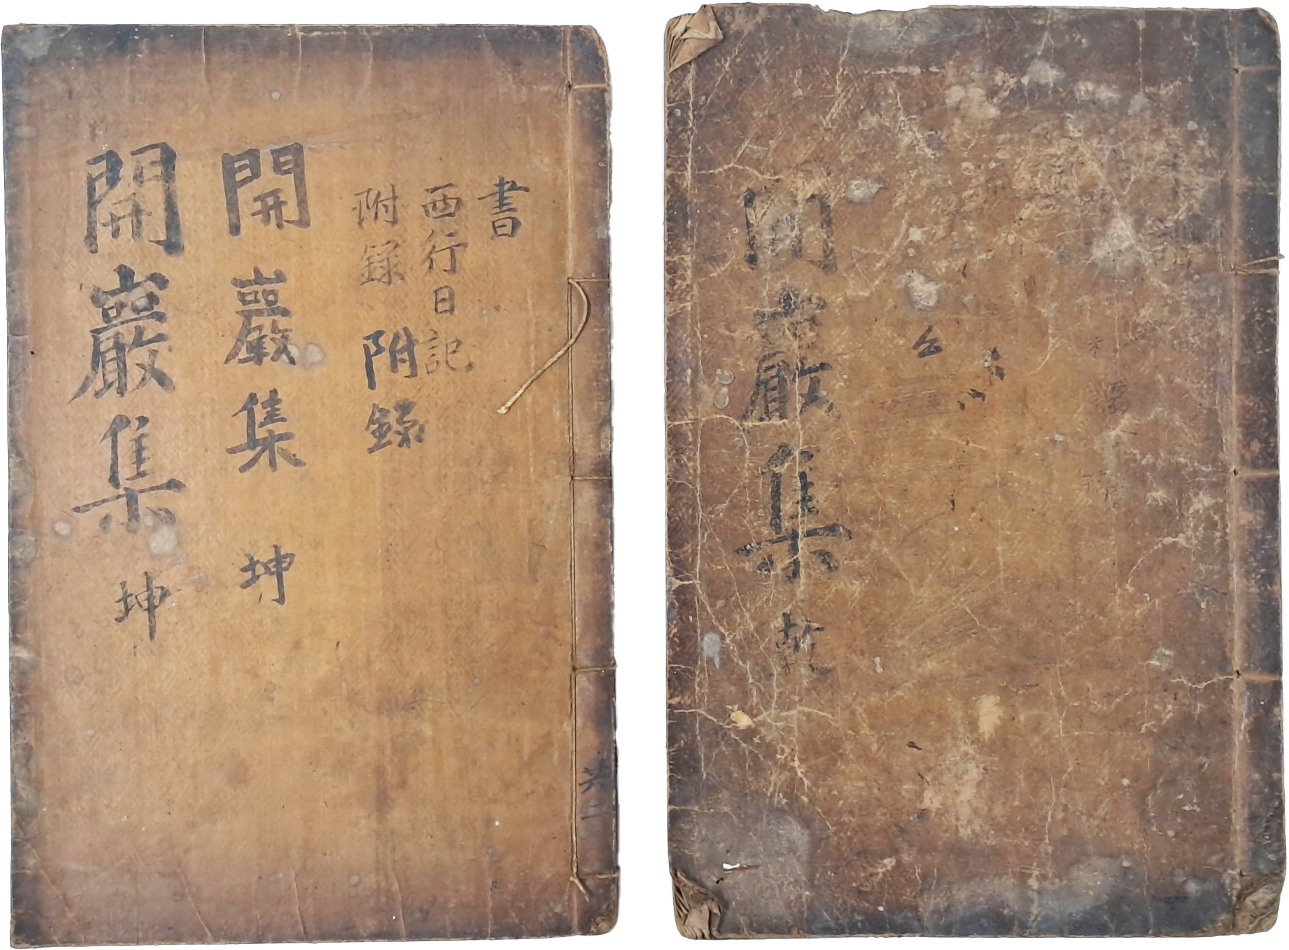 書
西行日記
附錄
附錄
開巖集 坤
開巖集 坤
共二
開巖集 乾